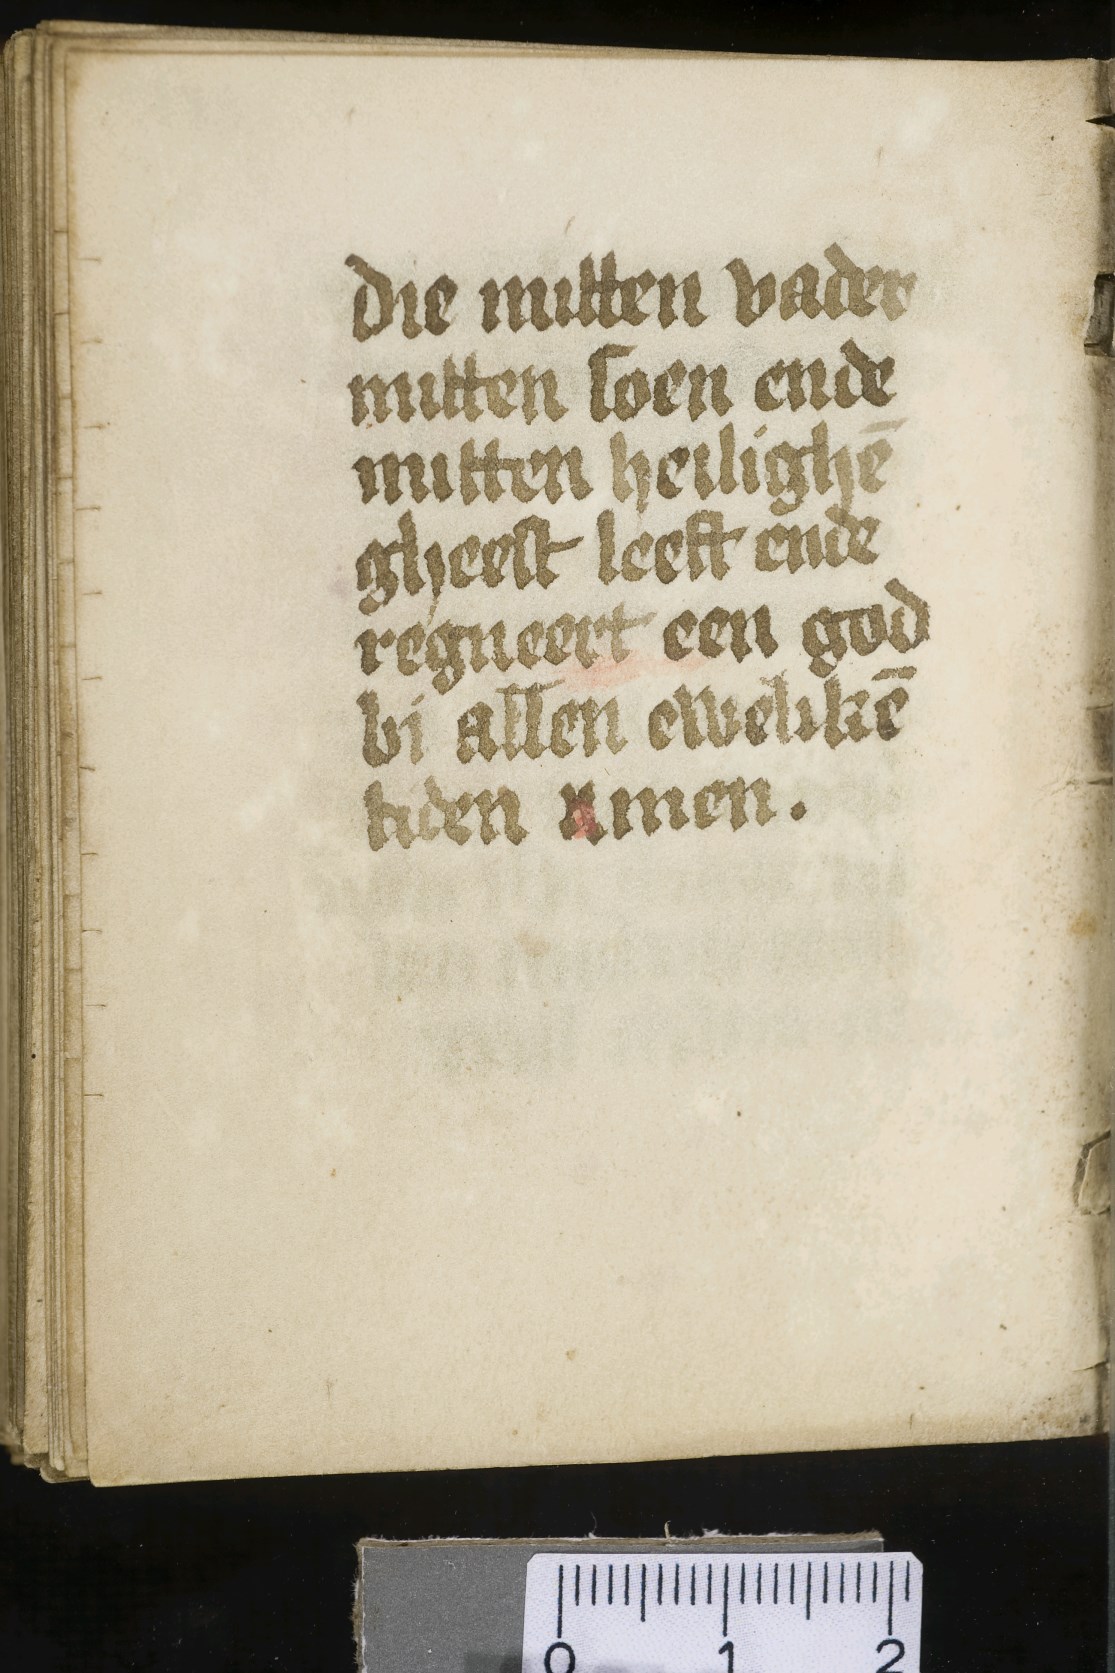 die mitten vader
mitten soen ende
mitten heilighē
gheest leeft ende
regneert een god
bi allen ewelikē
tiden Amen.
0 1 2